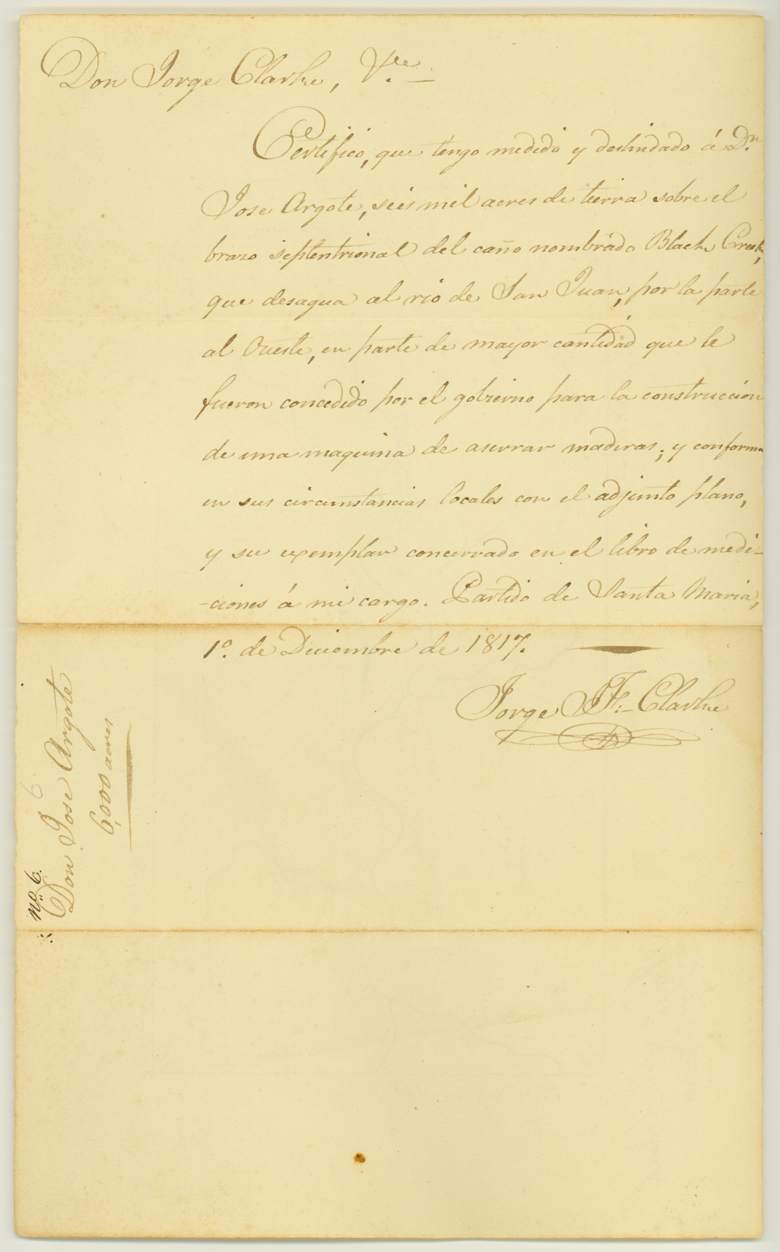 Don Jorge Clarke, &.ª
Certifico, que tengo medido y deslindado á Dn.
Jose Argote, seis mil acres de tierra sobre el
brazo septentrional del caño nombrado Black Creek,
que desagua al rio de San Juan, por la parte
al Oueste, en parte de mayor cantidad que le
fueron concedido por el gobierno para la construccion
de una maquina de aserrar maderas; y conforma
en sus circunstancias locales con el adjunto plano,
y su exemplar concervado en el libro de medi-
-ciones á mi cargo. Partido de Santa Maria,
1º. de Diciembre de 1817.
Jorge J. F. Clarke
No. 6.
Don Jose Argote
6,000 acres